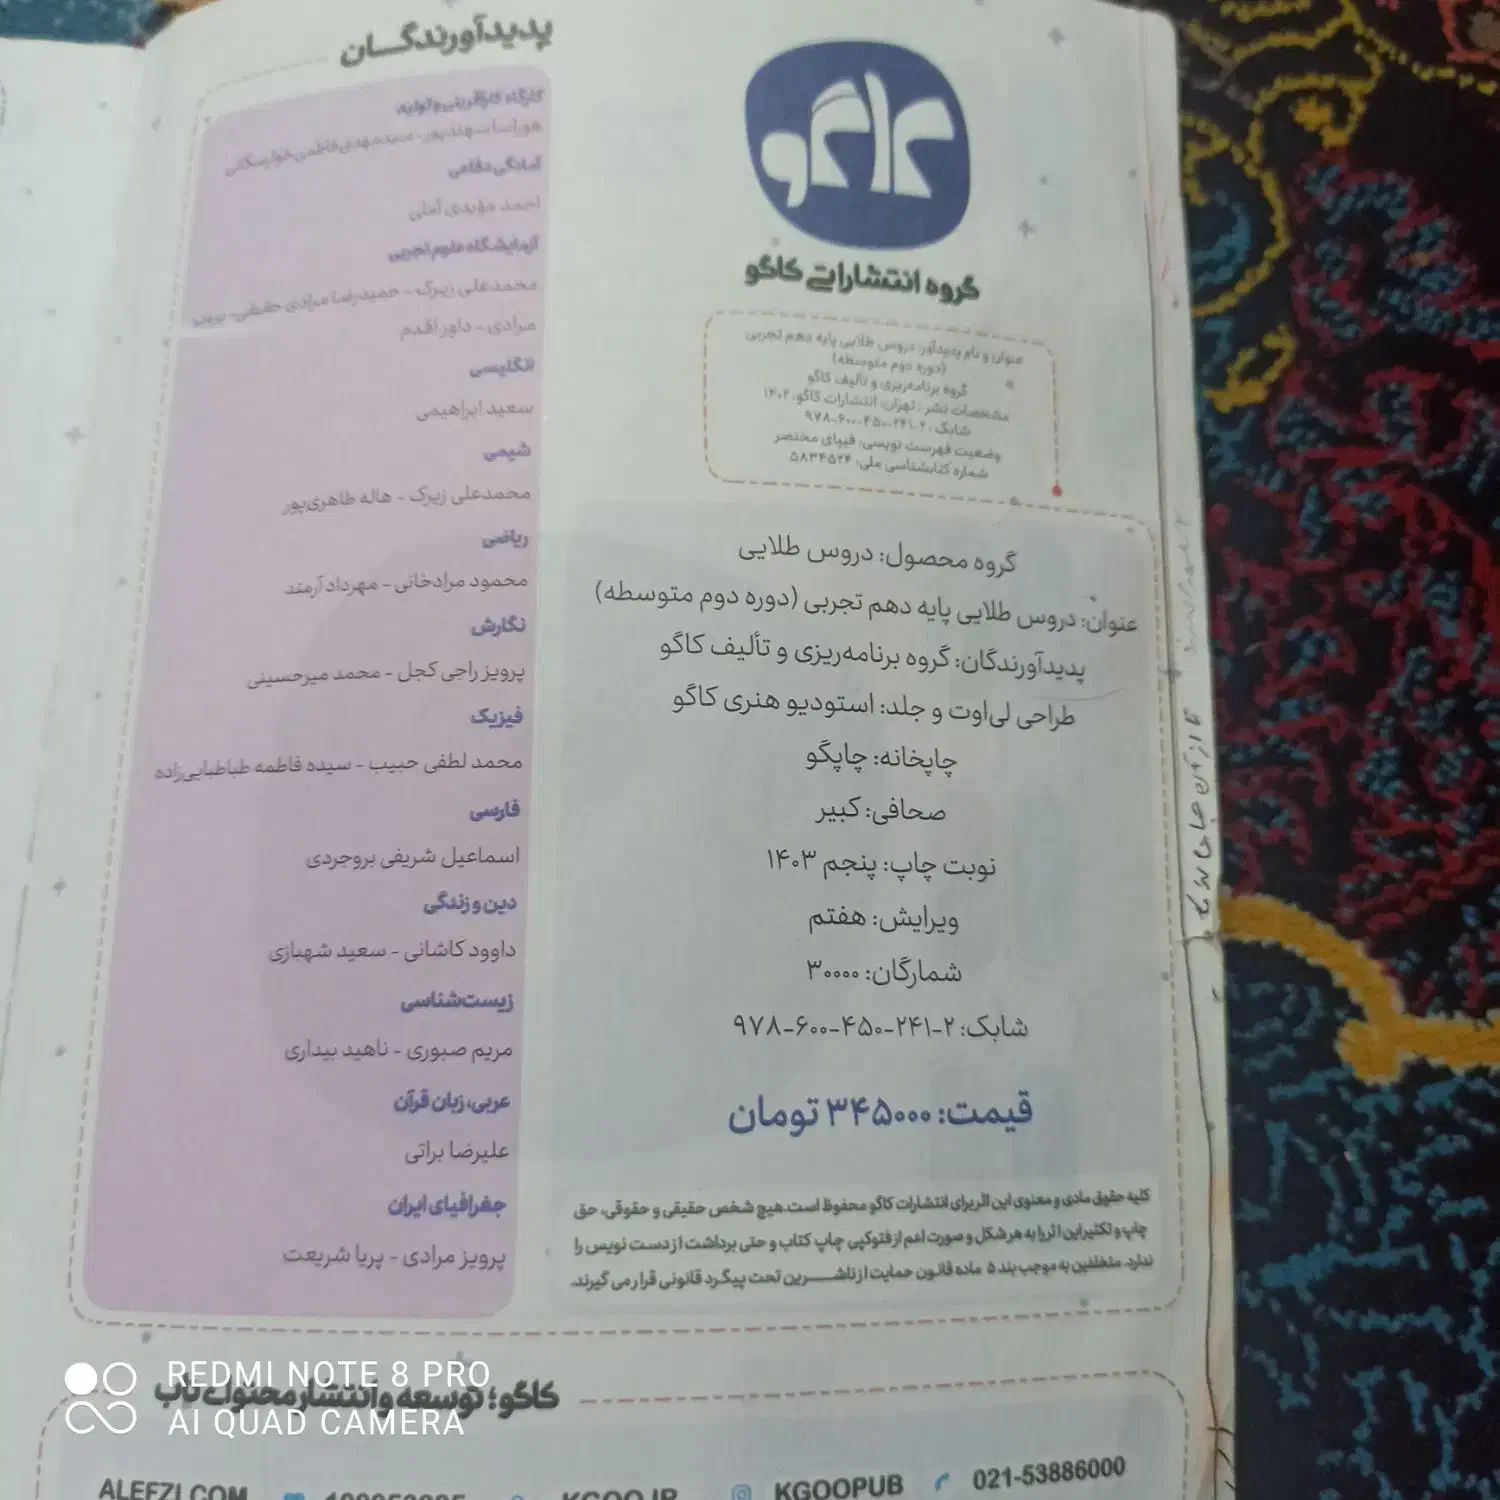 کاگو
گروه انتشاراتی کاگو
عنوان و نام پدیدآور: دروس طلایی پایه دهم تجربی
(دوره دوم متوسطه)
گروه برنامه‌ریزی و تألیف کاگو
مشخصات نشر: تهران: انتشارات کاگو، ۱۴۰۲
شابک: ۲-۲۴۱-۴۵۰-۶۰۰-۹۷۸
وضعیت فهرست نویسی: فیپای مختصر
شماره کتابشناسی ملی: ۵۸۳۴۵۲۴
گروه محصول: دروس طلایی
عنوان: دروس طلایی پایه دهم تجربی (دوره دوم متوسطه)
پدیدآورندگان: گروه برنامه‌ریزی و تألیف کاگو
طراحی لی‌اوت و جلد: استودیو هنری کاگو
چاپخانه: چاپگو
صحافی: کبیر
نوبت چاپ: پنجم ۱۴۰۳
ویرایش: هفتم
شمارگان: ۳۰۰۰۰
شابک: ۲-۲۴۱-۴۵۰-۶۰۰-۹۷۸
قیمت: ۳۴۵۰۰۰ تومان
کلیه حقوق مادی و معنوی این اثر برای انتشارات کاگو محفوظ است. هیچ شخص حقیقی و حقوقی، حق
چاپ و تکثیر این اثر را به هر شکل و صورت اعم از فتوکپی چاپ کتاب و حتی برداشت از دست نویس را
ندارد. متخلفین به موجب بند ۵ ماده قانون حمایت از ناشرین تحت پیگرد قانونی قرار می گیرند.
پدیدآورندگان
کارگاه کارآفرینی و تولید
سهندپور- سیدمهدی فاطمی
آمادگی دفاعی
احمد مؤیدی آملی
آزمایشگاه علوم تجربی
محمدعلی زیرک - حمیدرضا مرادی حقیقی- پرویز
مرادی - داور اقدم
انگلیسی
سعید ابراهیمی
شیمی
محمدعلی زیرک - هاله طاهری‌پور
ریاضی
محمود مرادخانی - مهرداد آرمند
نگارش
پرویز راجی کجل - محمد میرحسینی
فیزیک
محمد لطفی حبیب - سیده فاطمه طباطبایی‌زاده
فارسی
اسماعیل شریفی بروجردی
دین و زندگی
داوود کاشانی - سعید شهبازی
زیست‌شناسی
مریم صبوری - ناهید بیداری
عربی، زبان قرآن
علیرضا براتی
جغرافیای ایران
پرویز مرادی - پریا شریعت
کاگو؛ توسعه و انتشار محتوای ناب
021-53886000
KGOOPUB
KGOO.IR
ALEFZI.COM
REDMI NOTE 8 PRO
AI QUAD CAMERA